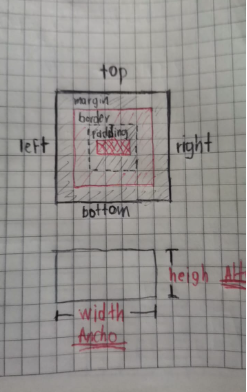 top
margin
border
padding
left
right
bottom
heigh Alt
width
Ancho